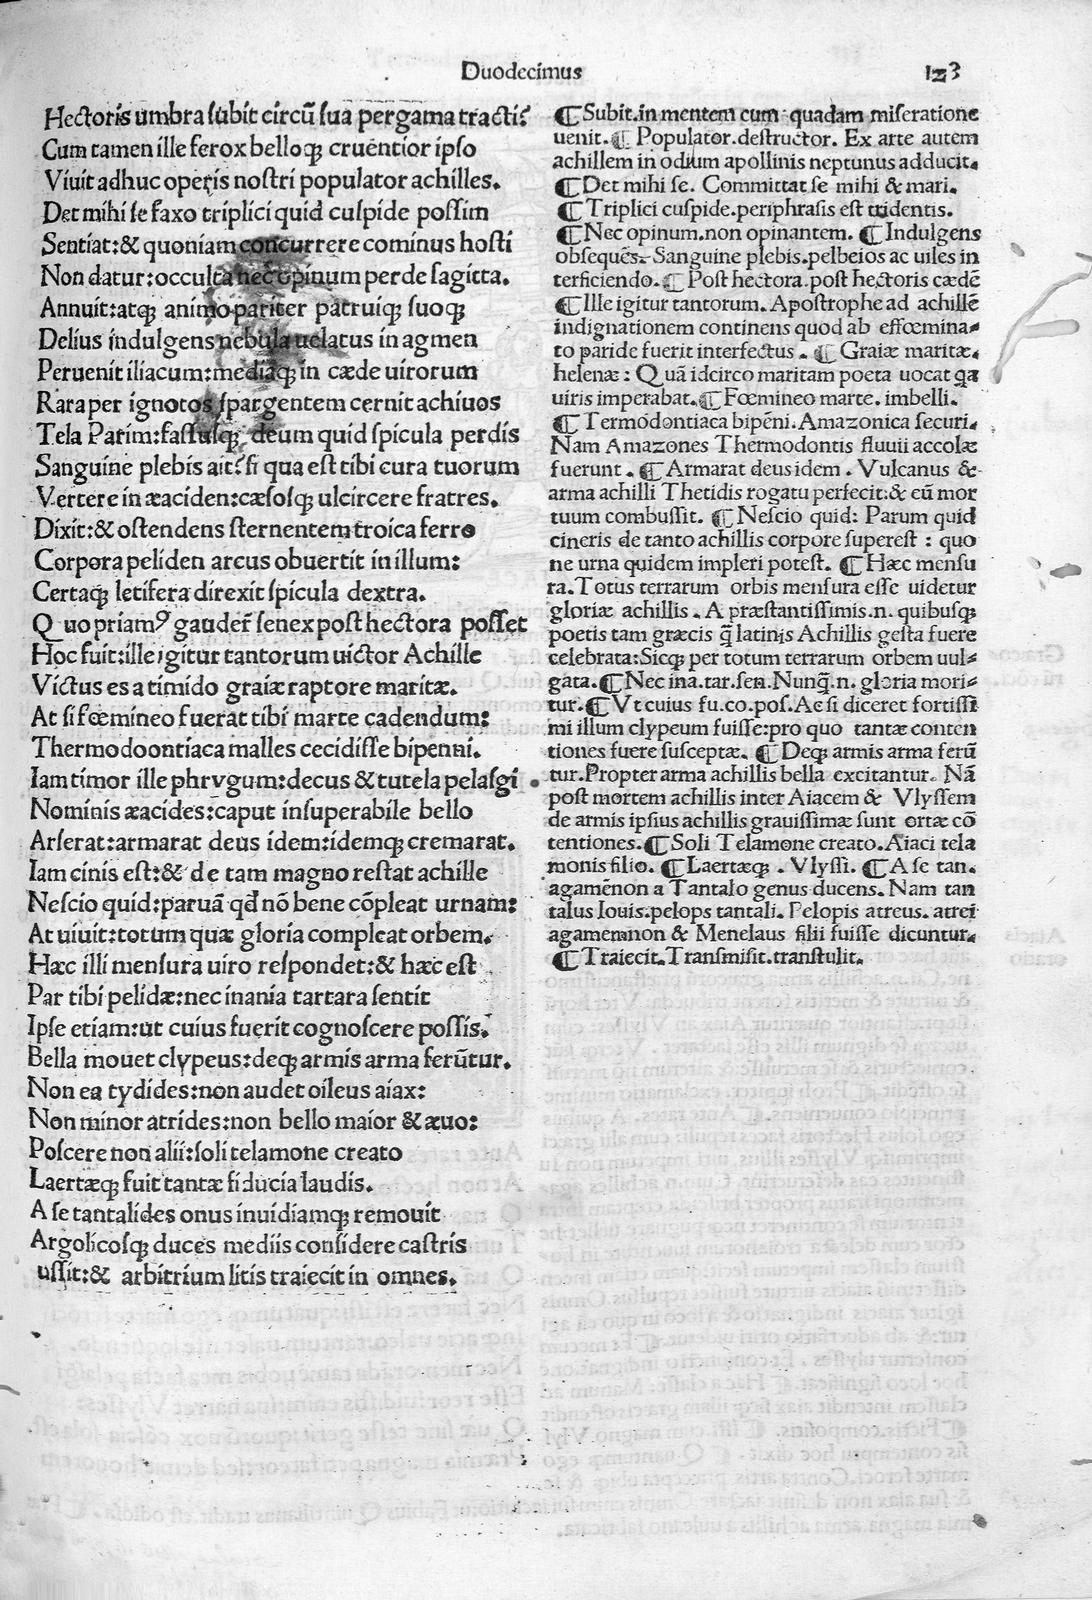 Duodecimus 123
Hectoris umbra subit circũ sua pergama tracti?
Cum tamen ille ferox belloqȝ cruentior ipso
Viuit adhuc operis nostri populator achilles.
Det mihi se faxo triplici quid cuspide possim
Sentiat:& quoniam concurrere cominus hosti
Non datur:occulta nec opinum perde sagitta.
Annuit:atqȝ animo pariter patruiqȝ suoqȝ
Delius indulgens nebula uelatus in agmen
Peruenit iliacum:mediaqȝ in cæde uirorum
Rara per ignotos spargentem cernit achiuos
Tela Parim:fassusqȝ deum quid spicula perdis
Sanguine plebis ait?si qua est tibi cura tuorum
Vertere in æaciden:cæsosqȝ ulcircere fratres.
Dixit:& ostendens sternentem troica ferro
Corpora peliden arcus obuertit in illum:
Certaqȝ letifera direxit spicula dextra.
Quo priamꝰ gauder̃ senex post hectora posset
Hoc fuit:ille igitur tantorum uictor Achille
Victus es a timido graiæ raptore maritæ.
At si fœmineo fuerat tibi marte cadendum:
Thermodoontiaca malles cecidisse bipenni.
Iam timor ille phrygum:decus & tutela pelasgi
Nominis æacides:caput insuperabile bello
Arserat:armarat deus idem:idemqȝ cremarat.
Iam cinis est:& de tam magno restat achille
Nescio quid:paruã qđ nõ bene cõpleat urnam:
At uiuit:totum quæ gloria compleat orbem.
Hæc illi mensura uiro respondet:& hæc est
Par tibi pelidæ:nec inania tartara sentit
Ipse etiam:ut cuius fuerit cognoscere possis.
Bella mouet clypeus:deqȝ armis arma ferũtur.
Non ea tydides:non audet oileus aiax:
Non minor atrides:non bello maior & æuo:
Poscere non alii:soli telamone creato
Laertæqȝ fuit tantæ fiducia laudis.
A se tantalides onus inuidiamqȝ remouit
Argolicosqȝ duces mediis considere castris
ussit:& arbitrium litis traiecit in omnes.
¶ Subit.in mentem cum quadam miseratione
uenit.¶ Populator.destructor. Ex arte autem
achillem in odium apollinis neptunus adducit.
¶ Det mihi se. Committat se mihi & mari.
¶ Triplici cuspide.periphrasis est tridentis.
¶ Nec opinum.non opinantem. ¶ Indulgens
obsequẽs. Sanguine plebis.pelbeios ac uiles in
terficiendo.¶ Post hectora.post hectoris cædẽ
¶ Ille igitur tantorum. Apostrophe ad achillẽ
indignationem continens quod ab effœmina-
to paride fuerit interfectus. ¶ Graiæ maritæ.
helenæ: Quã idcirco maritam poeta uocat qa
uiris imperabat.¶ Fœmineo marte. imbelli.
¶ Termodontiaca bipẽni. Amazonica securi.
Nam Amazones Thermodontis fluuii accolæ
fuerunt. ¶ Armarat deus idem. Vulcanus &
arma achilli Thetidis rogatu perfecit:& eũ mor
tuum combussit. ¶ Nescio quid: Parum quid
cineris de tanto achillis corpore superest: quo
ne urna quidem impleri potest. ¶ Hæc mensu
ra. Totus terrarum orbis mensura esse uidetur
gloriæ achillis. A præstantissimis.n. quibusqȝ
poetis tam græcis q̃ latinis Achillis gesta fuere
celebrata:Sicqȝ per totum terrarum orbem uul-
gata.¶ Nec ina.tar.sen. Nunq̃.n. gloria mori-
tur.¶ Vt cuius fu.co.pos. Ac si diceret fortissi
mi illum clypeum fuisse:pro quo tantæ conten
tiones fuere susceptæ. ¶ Deqȝ armis arma ferũ
tur. Propter arma achillis bella excitantur. Nã
post mortem achillis inter Aiacem & Vlyssem
de armis ipsius achillis grauissimæ sunt ortæ cõ
tentiones.¶ Soli Telamone creato. Aiaci tela
monis filio. ¶ Laertæqȝ. Vlyssi. ¶ A se tan.
agamẽnon a Tantalo genus ducens. Nam tan
talus Iouis.pelops tantali. Pelopis atreus. atrei
agamemnon & Menelaus filii fuisse dicuntur.
¶ Traiecit. Transmisit.transtulit.